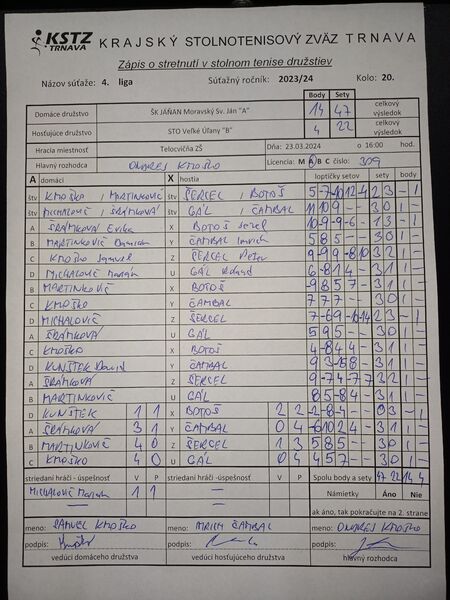 KSTZ TRNAVA KRAJSKÝ STOLNOTENISOVÝ ZVÄZ TRNAVA
Zápis o stretnutí v stolnom tenise družstiev
Názov súťaže: 4. liga Súťažný ročník: 2023/24 Kolo: 20.
Body Sety
Domáce družstvo ŠK JÁŇAN Moravský Sv. Ján "A" 14 47 celkový výsledok
Hosťujúce družstvo STO Veľké Úľany "B" 4 22 celkový výsledok
Hracia miestnosť Telocvičňa ZŠ Dňa: 23.03.2024 o 16:00 hod.
Hlavný rozhodca ONDREJ KMOŠKO Licencia: M A B C číslo: 309
A domáci X hostia loptičky setov sety body
štv KMOŠKO / MARTINKOVIČ štv ŠERCEL / BOTOŠ 2 3 - 1
štv MICHALOVIČ / ŠRÁMKOVÁ štv GÁL / ČAMBAL 11 10 9 - - 3 0 1 -
A ŠRÁMKOVÁ Erika X BOTOŠ 10 -9 -9 -6 - 1 3 - 1
B MARTINKOVIČ Y ČAMBAL 5 8 5 - - 3 0 1 -
C KMOŠKO Samuel Z ŠERCEL Peter 9 -9 9 -8 10 3 2 1 -
D MICHALOVIČ Marián U GÁL Roland 6 -8 1 4 - 3 1 1 -
B MARTINKOVIČ X BOTOŠ -9 8 5 7 - 3 1 1 -
C KMOŠKO Y ČAMBAL 7 7 7 - - 3 0 1 -
D MICHALOVIČ Z ŠERCEL 2 3 - 1
A ŠRÁMKOVÁ U GÁL 5 9 5 - - 3 0 1 -
C KMOŠKO X BOTOŠ 4 -8 4 4 - 3 1 1 -
D KUNŠTEK David Y ČAMBAL 3 1 1 -
A ŠRÁMKOVÁ Z ŠERCEL 9 -7 4 -7 7 3 2 1 -
B MARTINKOVIČ U GÁL 3 1 1 -
D KUNŠTEK 1 1 X BOTOŠ 2 2 -2 -8 -4 - - 0 3 - 1
A ŠRÁMKOVÁ 3 1 Y ČAMBAL 0 4 3 1 1 -
B MARTINKOVIČ 4 0 Z ŠERCEL 1 3 5 8 5 - - 3 0 1 -
C KMOŠKO 4 0 U GÁL 0 4 4 5 7 - - 3 0 1 -
striedaní hráči - úspešnosť V P striedaní hráči - úspešnosť V P Spolu body a sety 47 22 14 4
MICHALOVIČ Marián 1 1 — Námietky Áno Nie
— — ak áno, tak pokračujte na 2. strane
meno: SAMUEL KMOŠKO meno: ČAMBAL meno: ONDREJ KMOŠKO
podpis: podpis: podpis:
vedúci domáceho družstva vedúci hosťujúceho družstva hlavný rozhodca